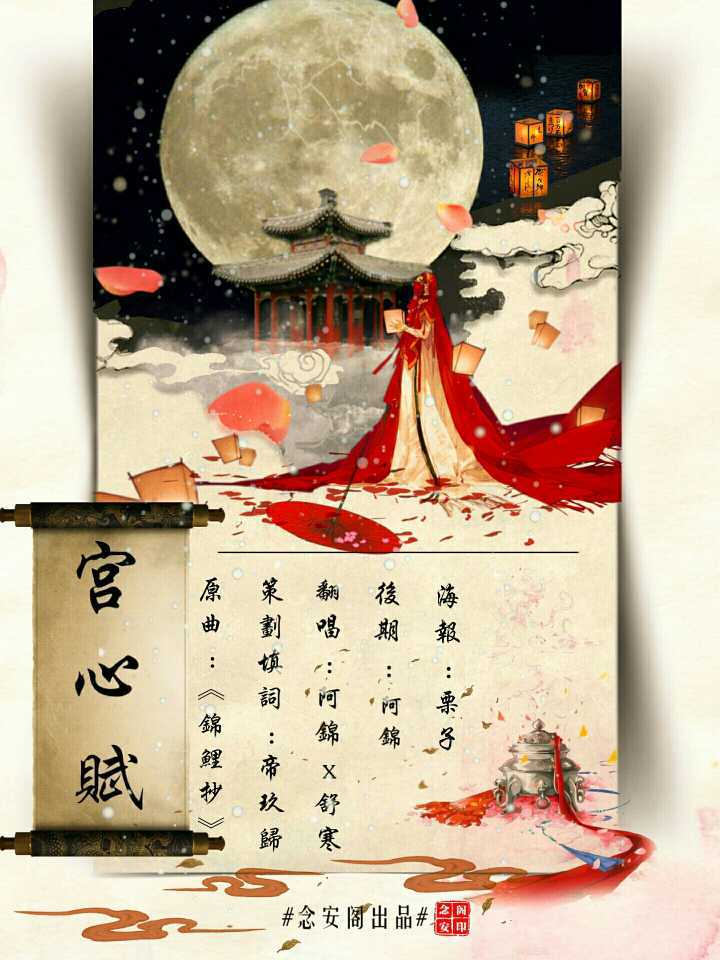 宫心賦
原曲：《錦鯉抄》
策劃填詞：帝玖歸
翻唱：阿錦x舒寒
後期：阿錦
海報：栗子
#念安阁出品#
念安阁印